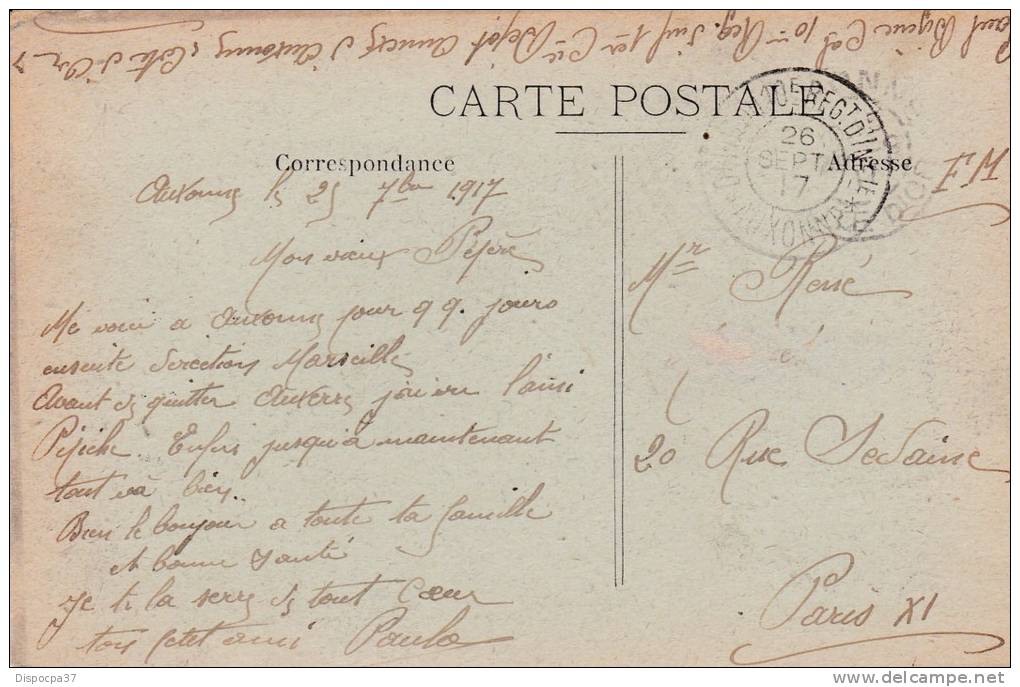 CARTE POSTALE
Correspondance
Adresse
10E REG.T D'INF.IE
26
SEPT
17
AUXONNE
FM
Auxonne le 25 7bre 1917
Mon vieux Pépère
Me voici a Auxonne pour qq. jours
ensuite direction Marseille
Avant de quitter Auxerre j'ai vu l'ami
Enfin jusqu'à maintenant
tout va bien..
Bien le bonjour a toute ta famille
et bonne santé
Je te la serre de tout Cœur
ton petit ami Paulo
Mr René
20 Rue Sedaine
Paris XI
10me Reg. Inf 1er Cie Dépôt Auxonne Cote d'Or
Dispocpa37
delcampe.net